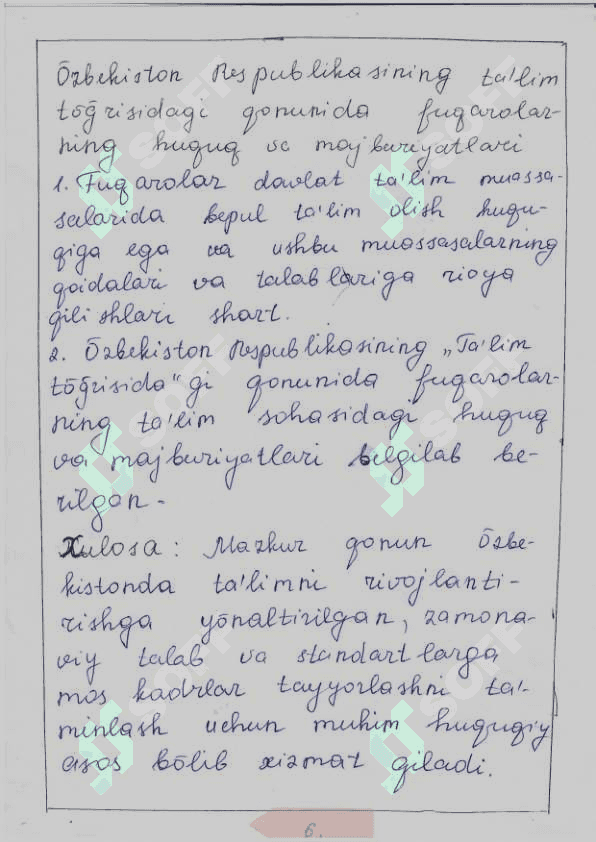 Õzbekiston Respublikasining ta'lim
tõğrisidagi qonunida fuqarolar-
ning huquq va majburiyatlari
1. Fuqarolar davlat ta'lim muassa-
salarida bepul ta'lim olish huqu-
qiga ega va ushbu muassasalarning
qoidalari va talablariga rioya
qilishlari shart.
2. Õzbekiston Respublikasining „Ta'lim
tõğrisida"gi qonunida fuqarolar-
ning ta'lim sohasidagi huquq
va majburiyatlari belgilab be-
rilgan.
Xulosa: Mazkur qonun õzbe-
kistonda ta'limni rivojlanti-
rishga yõnaltirilgan, zamona-
viy talab va standartlarga
mos kadrlar tayyorlashni ta'-
minlash uchun muhim huquqiy
asos bõlib xizmat qiladi.
6.
SOFF
SOFF
SOFF
SOFF
SOFF
SOFF